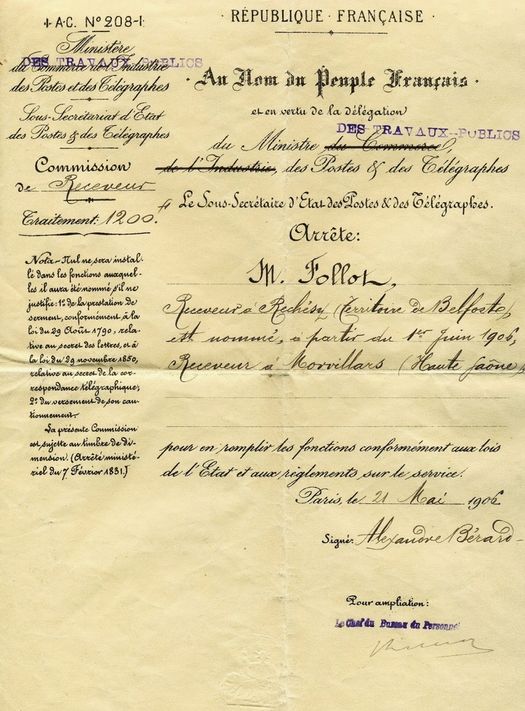 AC. Nº 208-1
Ministère
du Commerce de l'Industrie
DES TRAVAUX PUBLICS
des Postes et des Télégraphes
Sous-Secrétariat d'Etat
des Postes & des Télégraphes
Commission
de Receveur
Traitement: 1200.
Nota - Nul ne sera instal-
lé dans les fonctions auxquel-
les il aura été nommé s'il ne
justifie: 1º de la prestation de
serment, conformément à la
loi du 29 Août 1790, rela-
tive au secret des lettres, et à
la loi du 29 novembre 1850,
relative au secret de la cor-
respondance télégraphique;
2º du versement de son cau-
tionnement.
La présente Commission
est sujette au timbre de di-
mension. (Arrêté ministé-
riel du 7 Février 1831.)
· RÉPUBLIQUE FRANÇAISE ·
· Au Nom du Peuple Français ·
et en vertu de la délégation
DES TRAVAUX PUBLICS
du Ministre du Commerce,
de l'Industrie, des Postes & des Télégraphes
Le Sous-Secrétaire d'Etat des Postes & des Télégraphes.
Arrête:
M. Follot,
Receveur à Réchésy (Territoire de Belfort),
est nommé, à partir du 1er Juin 1906,
Receveur à Morvillars (Haute Saône),
pour en remplir les fonctions conformément aux lois
de l'Etat et aux règlements sur le service.
Paris, le 21 Mai 1906
Signé: Alexandre Bérard
Pour ampliation:
Le Chef du Bureau du Personnel